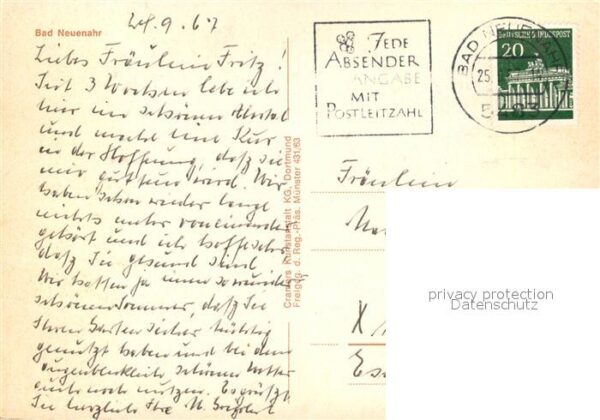 Bad Neuenahr
24.9.67
Liebes Fräulein Fritz!
Seit 3 Wochen lebe ich
hier im schönen Ahrtal
und mache eine Kur
in der Hoffnung, daß sie
mir guttun wird. Wir
haben schon wieder lange
nichts unter voneinander
gehört und ich hoffe sehr
daß Sie gesund sind.
Wir hatten ja einen so wunder
schönen Sommer, daß Sie
Ihren Garten sicher tüchtig
genutzt haben und bei dem
augenblicklich schönen Wetter
auch noch nutzen. Es grüßt
Sie herzlich Ihre M.
Cramers Kunstanstalt KG, Dortmund
Freigeg. d. Reg.-Präs. Münster 431/63
JEDE
ABSENDER
ANGABE
MIT
POSTLEITZAHL
BAD NEUENAHR
25.
5483
DEUTSCHE BUNDESPOST
20
Fräulein
X
privacy protection
Datenschutz